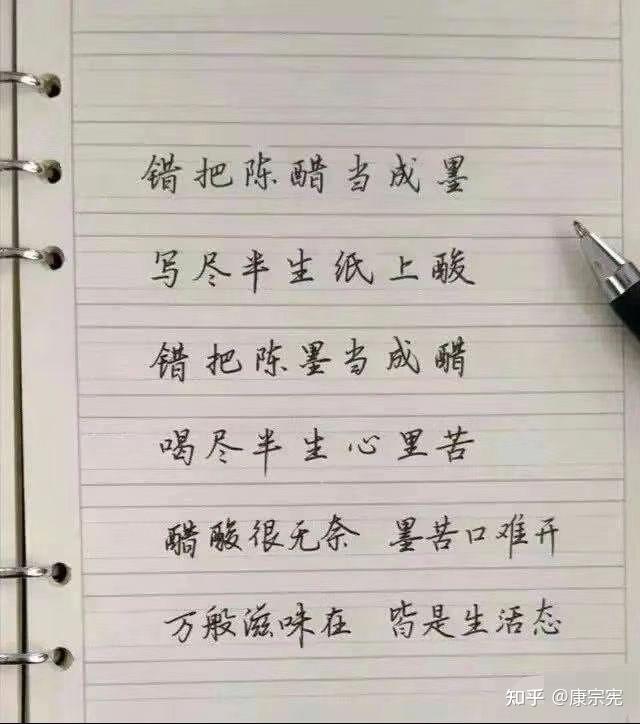 错把陈醋当成墨
写尽半生纸上酸
错把陈墨当成醋
喝尽半生心里苦
醋酸很无奈 墨苦口难开
万般滋味在 皆是生活态
知乎 @康宗宪